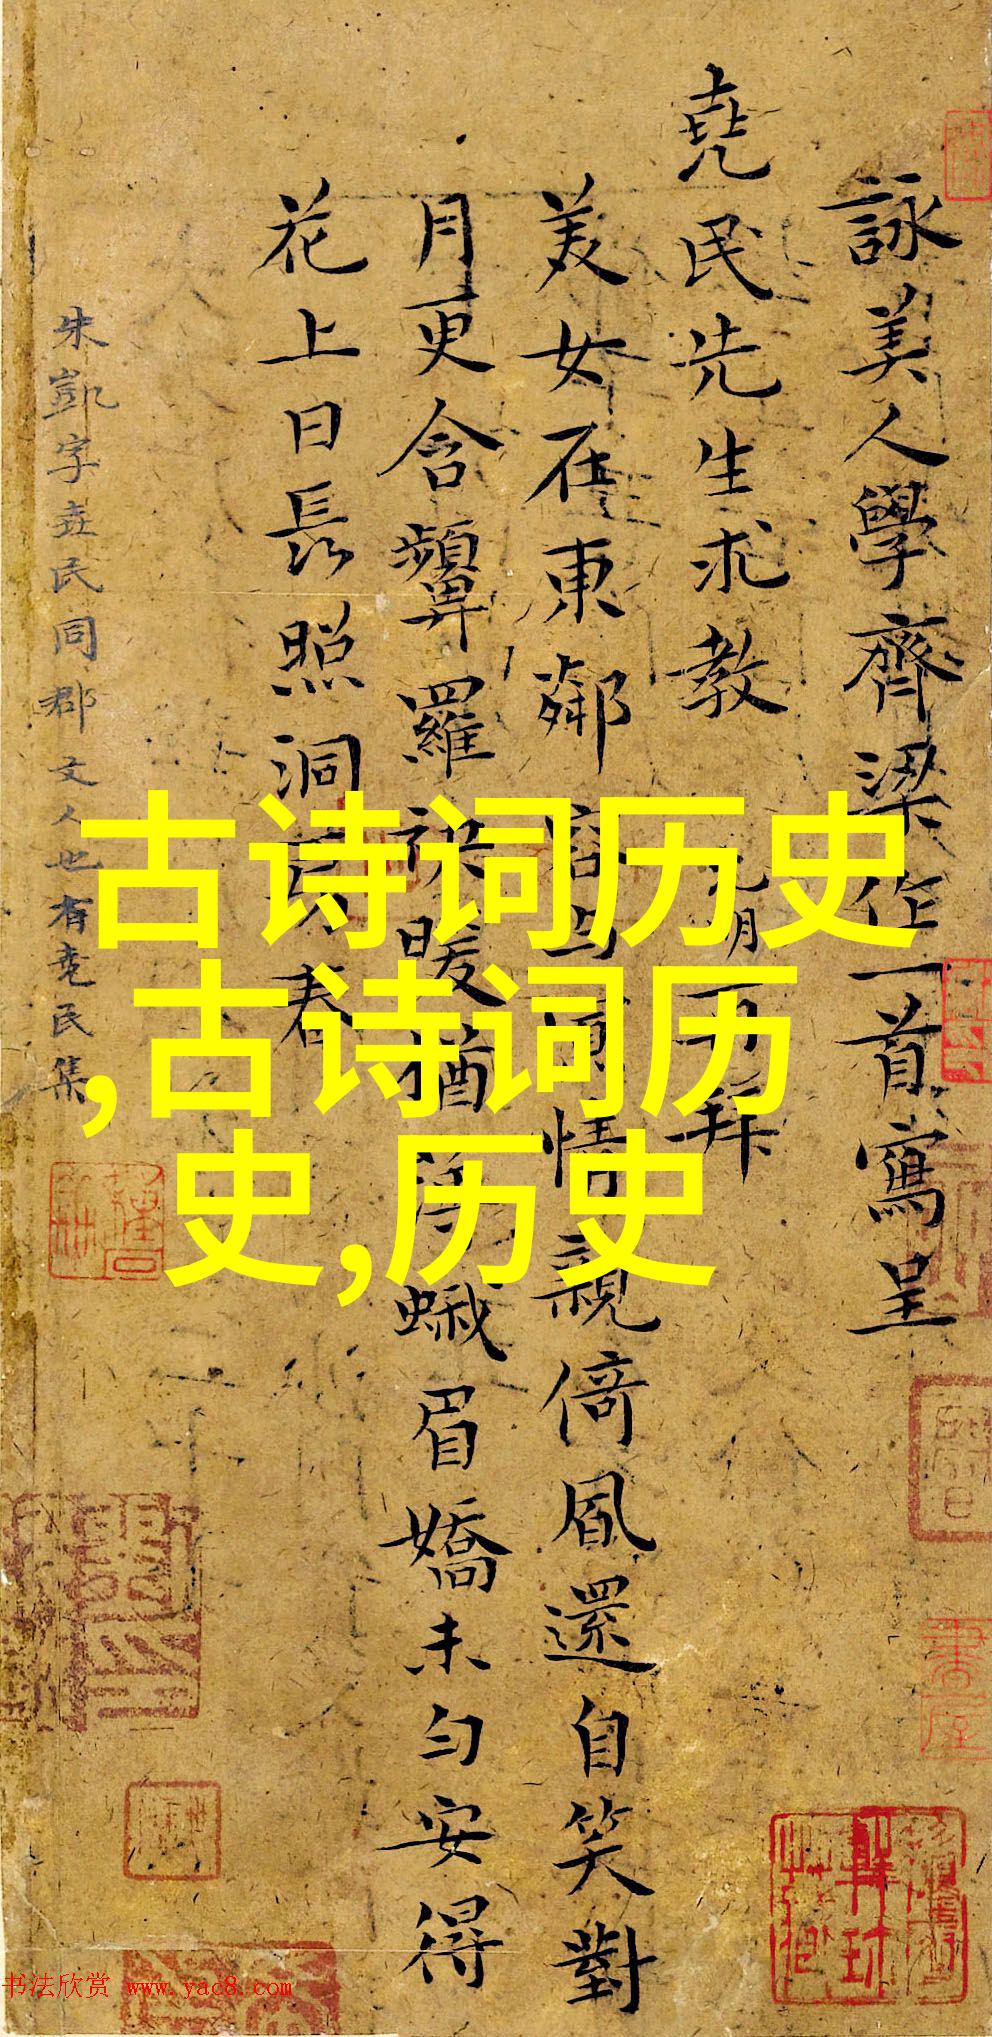 詠美人學齊梁作一首寫呈
堯民先生求教 九朋再拜
美女在東鄰 容與有情親倚風還自笑對
月更含顰羅袂暖猶薄蛾眉嬌未勻安得
花上日長照洞房春
朱凱字堯民同郡文人也有堯民集
古诗词历史
,古诗词历
史,历史
书法欣赏 www.yac8.com